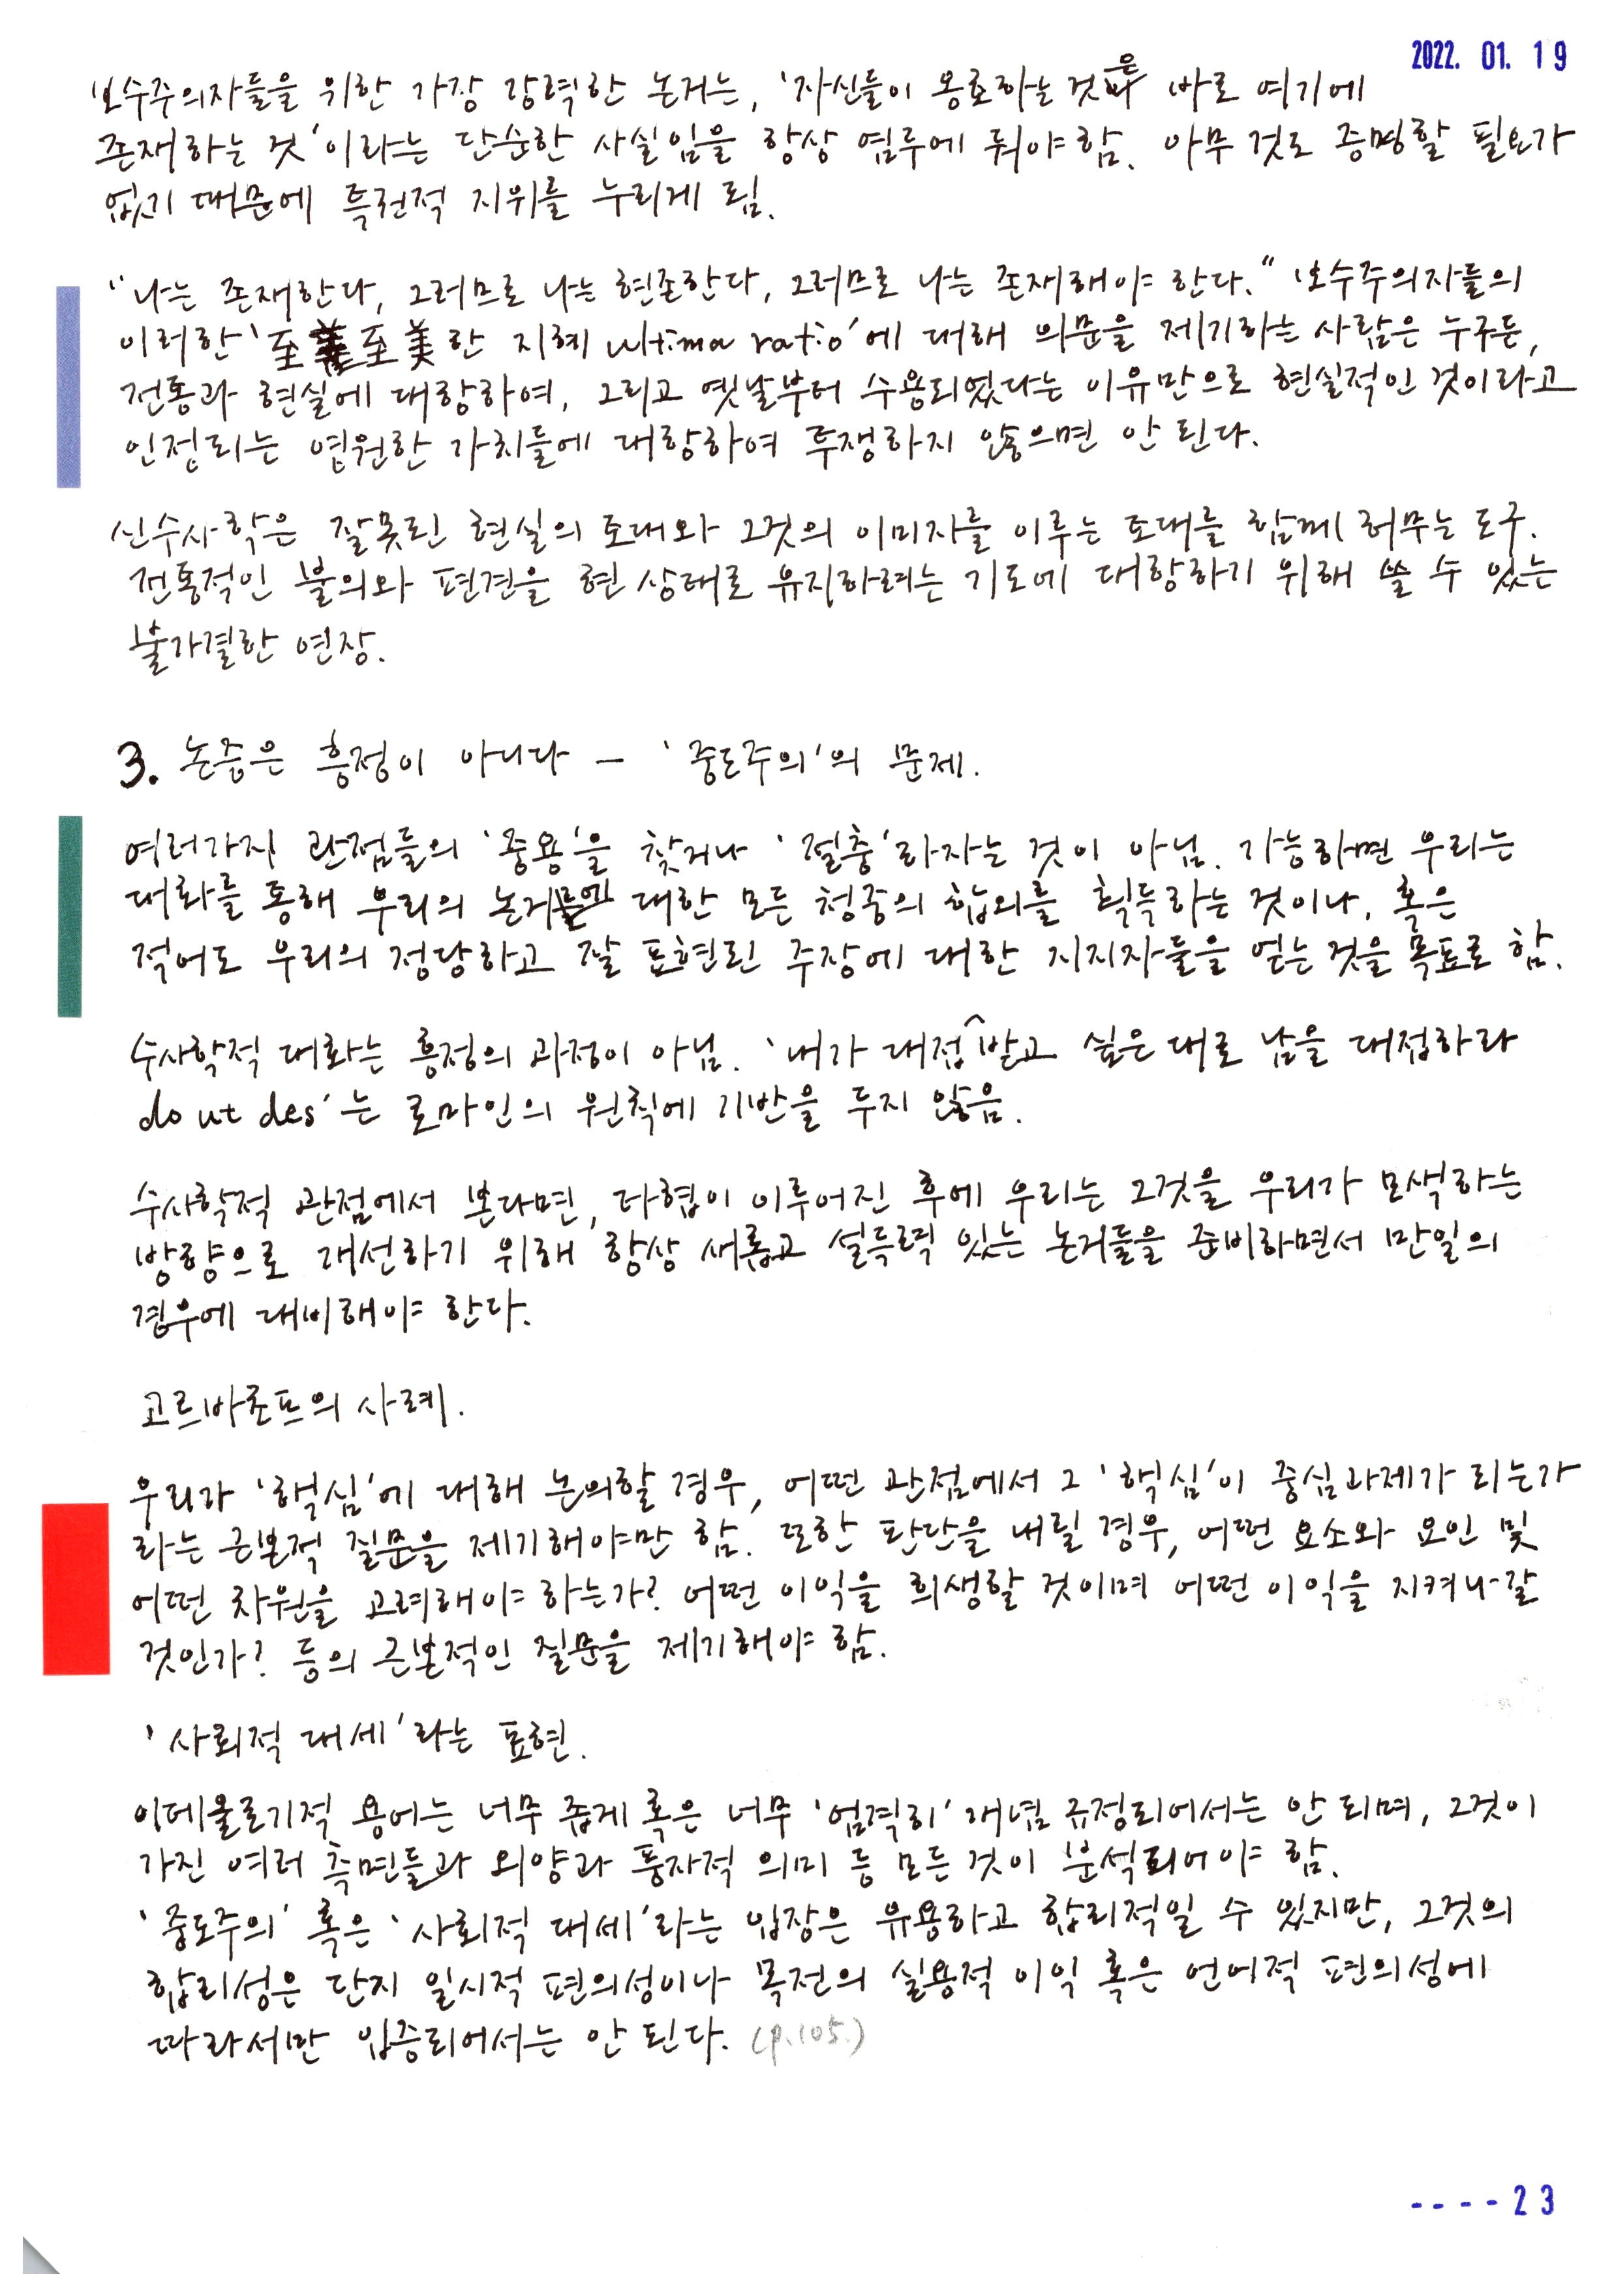 2022. 01. 19
보수주의자들을 위한 가장 강력한 논거는, '자신들이 옹호하는 것은 바로 여기에
존재하는 것'이라는 단순한 사실임을 항상 염두에 둬야 함. 아무 것도 증명할 필요가
없기 때문에 특권적 지위를 누리게 됨.
"나는 존재한다, 그러므로 나는 현존한다, 그러므로 나는 존재해야 한다." 보수주의자들의
이러한 '至 至美한 지혜 ultima ratio'에 대해 의문을 제기하는 사람은 누구든,
전통과 현실에 대항하여, 그리고 옛날부터 수용되었다는 이유만으로 현실적인 것이라고
인정되는 영원한 가치들에 대항하여 투쟁하지 않으면 안 된다.
신수사학은 잘못된 현실의 토대와 그것의 이미지를 이루는 토대를 함께 허무는 도구.
전통적인 불의와 편견을 현 상태로 유지하려는 기도에 대항하기 위해 쓸 수 있는
불가결한 연장.
3. 논증은 흥정이 아니다 - '중도주의'의 문제.
여러가지 관점들의 '중용'을 찾거나 '절충'하자는 것이 아님. 가능하면 우리는
대화를 통해 우리의 논거에 대한 모든 청중의 합의를 획득하는 것이나, 혹은
적어도 우리의 정당하고 잘 표현된 주장에 대한 지지자들을 얻는 것을 목표로 함.
수사학적 대화는 흥정의 과정이 아님. '내가 대접 받고 싶은 대로 남을 대접하라
do ut des'는 로마인의 원칙에 기반을 두지 않음.
수사학적 관점에서 본다면, 타협이 이루어진 후에 우리는 그것을 우리가 모색하는
방향으로 개선하기 위해 항상 새롭고 설득력 있는 논거들을 준비하면서 만일의
경우에 대비해야 한다.
고르바초프의 사례.
우리가 '핵심'에 대해 논의할 경우, 어떤 관점에서 그 '핵심'이 중심과제가 되는가
라는 근본적 질문을 제기해야만 함. 또한 판단을 내릴 경우, 어떤 요소와 요인 및
어떤 차원을 고려해야 하는가? 어떤 이익을 희생할 것이며 어떤 이익을 지켜나갈
것인가? 등의 근본적인 질문을 제기해야 함.
'사회적 대세'라는 표현.
이데올로기적 용어는 너무 좁게 혹은 너무 '엄격히' 개념 규정되어서는 안 되며, 그것이
가진 여러 측면들과 외양과 풍자적 의미 등 모든 것이 분석되어야 함.
'중도주의' 혹은 '사회적 대세'라는 입장은 유용하고 합리적일 수 있지만, 그것의
합리성은 단지 일시적 편의성이나 목전의 실용적 이익 혹은 언어적 편의성에
따라서만 입증되어서는 안 된다. (p.105.)
----23